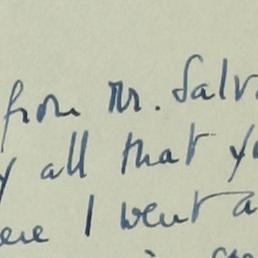 from Mr. Salv
all that
I went a